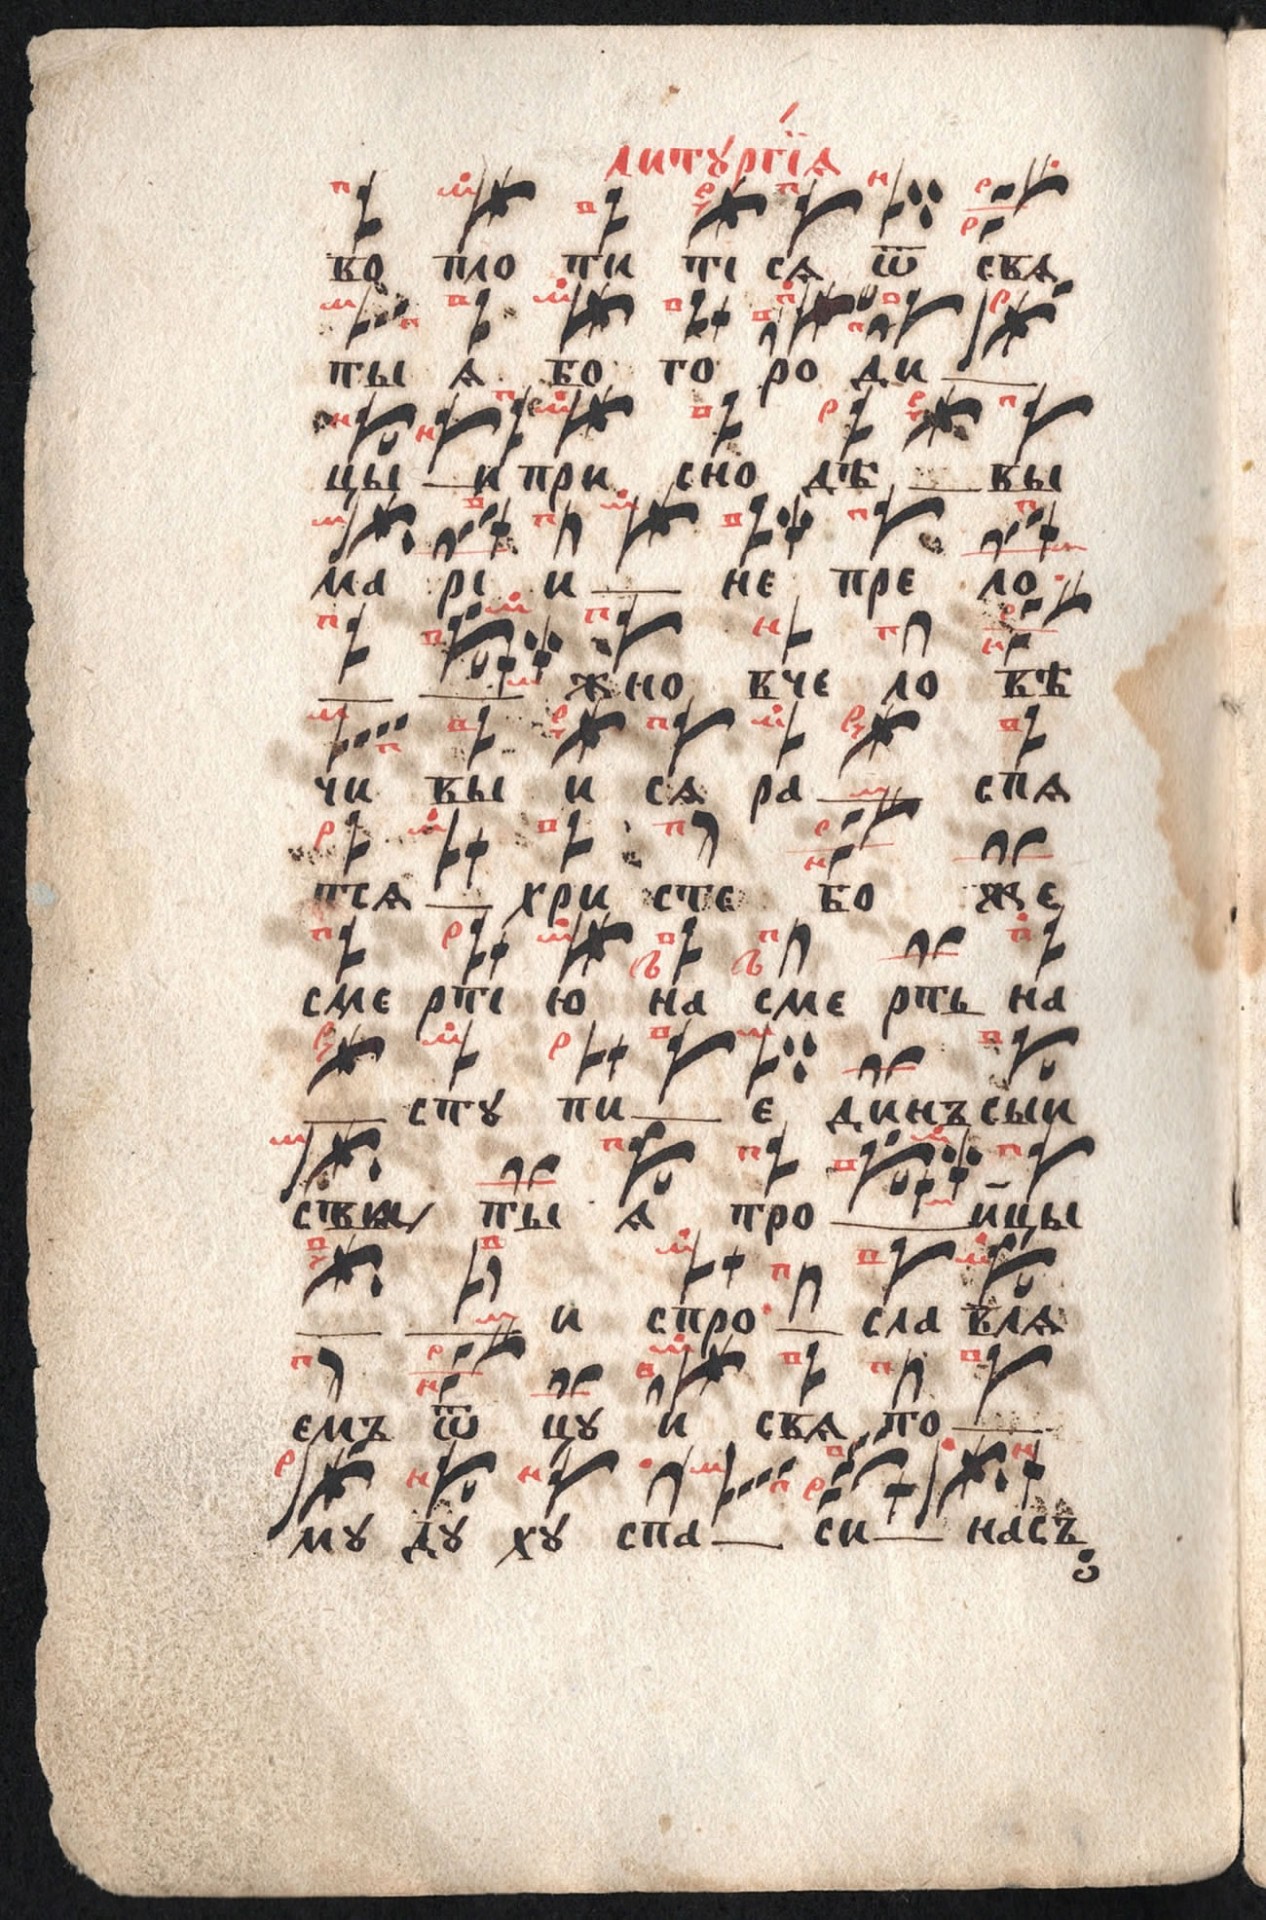 литꙋргїѧ
во пло ти ті сѧ ѿ свѧ
ты ѧ бо го ро ди
цы и при сно дѣ вы
ма рі и не пре ло
жно вче ло вѣ
чи вы и сѧ ра спѧ
тсѧ хри сте бо же
сме ртї ю на сме рть на
стꙋ пи е динъ сыи
свѧ ты ѧ тро ицы
и спро сла влѧ
емъ ѿ цꙋ и свѧ то
мꙋ дꙋ хꙋ спа си насъ